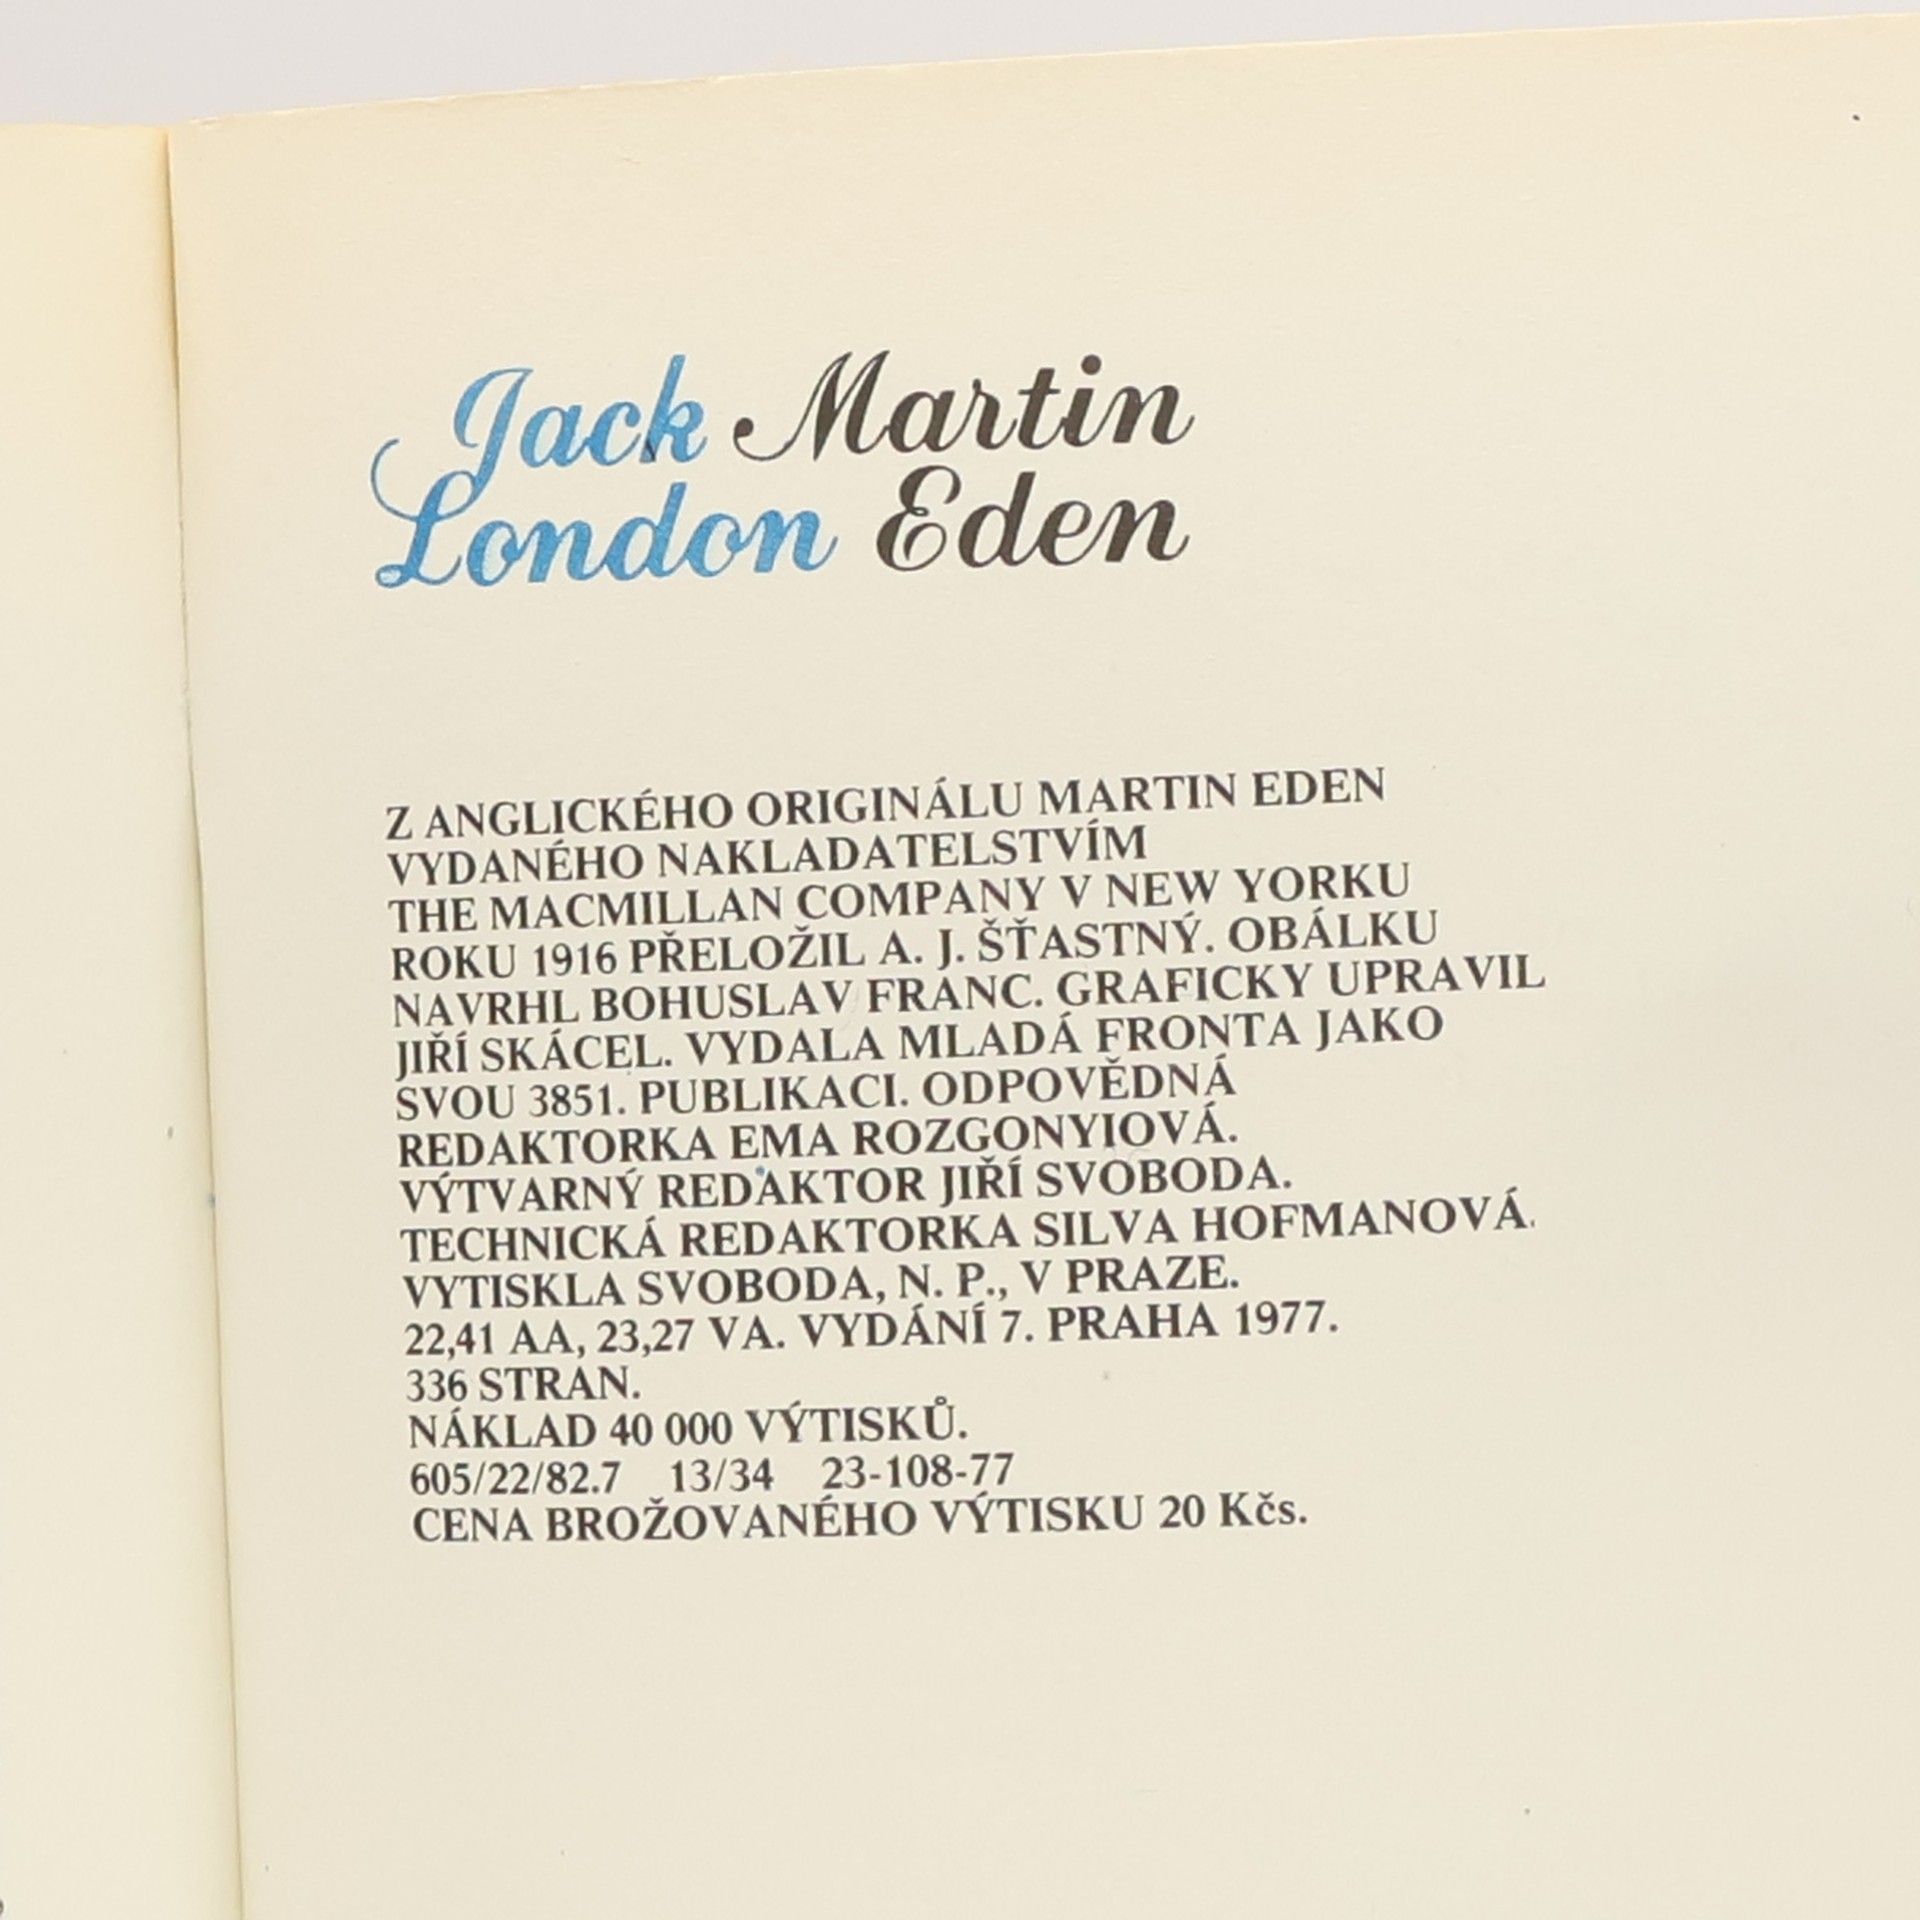 Jack Martin
London Eden
Z ANGLICKÉHO ORIGINÁLU MARTIN EDEN
VYDANÉHO NAKLADATELSTVÍM
THE MACMILLAN COMPANY V NEW YORKU
ROKU 1916 PŘELOŽIL A. J. ŠŤASTNÝ. OBÁLKU
NAVRHL BOHUSLAV FRANC. GRAFICKY UPRAVIL
JIŘÍ SKÁCEL. VYDALA MLADÁ FRONTA JAKO
SVOU 3851. PUBLIKACI. ODPOVĚDNÁ
REDAKTORKA EMA ROZGONYIOVÁ.
VÝTVARNÝ REDAKTOR JIŘÍ SVOBODA.
TECHNICKÁ REDAKTORKA SILVA HOFMANOVÁ.
VYTISKLA SVOBODA, N. P., V PRAZE.
22,41 AA, 23,27 VA. VYDÁNÍ 7. PRAHA 1977.
336 STRAN.
NÁKLAD 40 000 VÝTISKŮ.
605/22/82.7 13/34 23-108-77
CENA BROŽOVANÉHO VÝTISKU 20 Kčs.